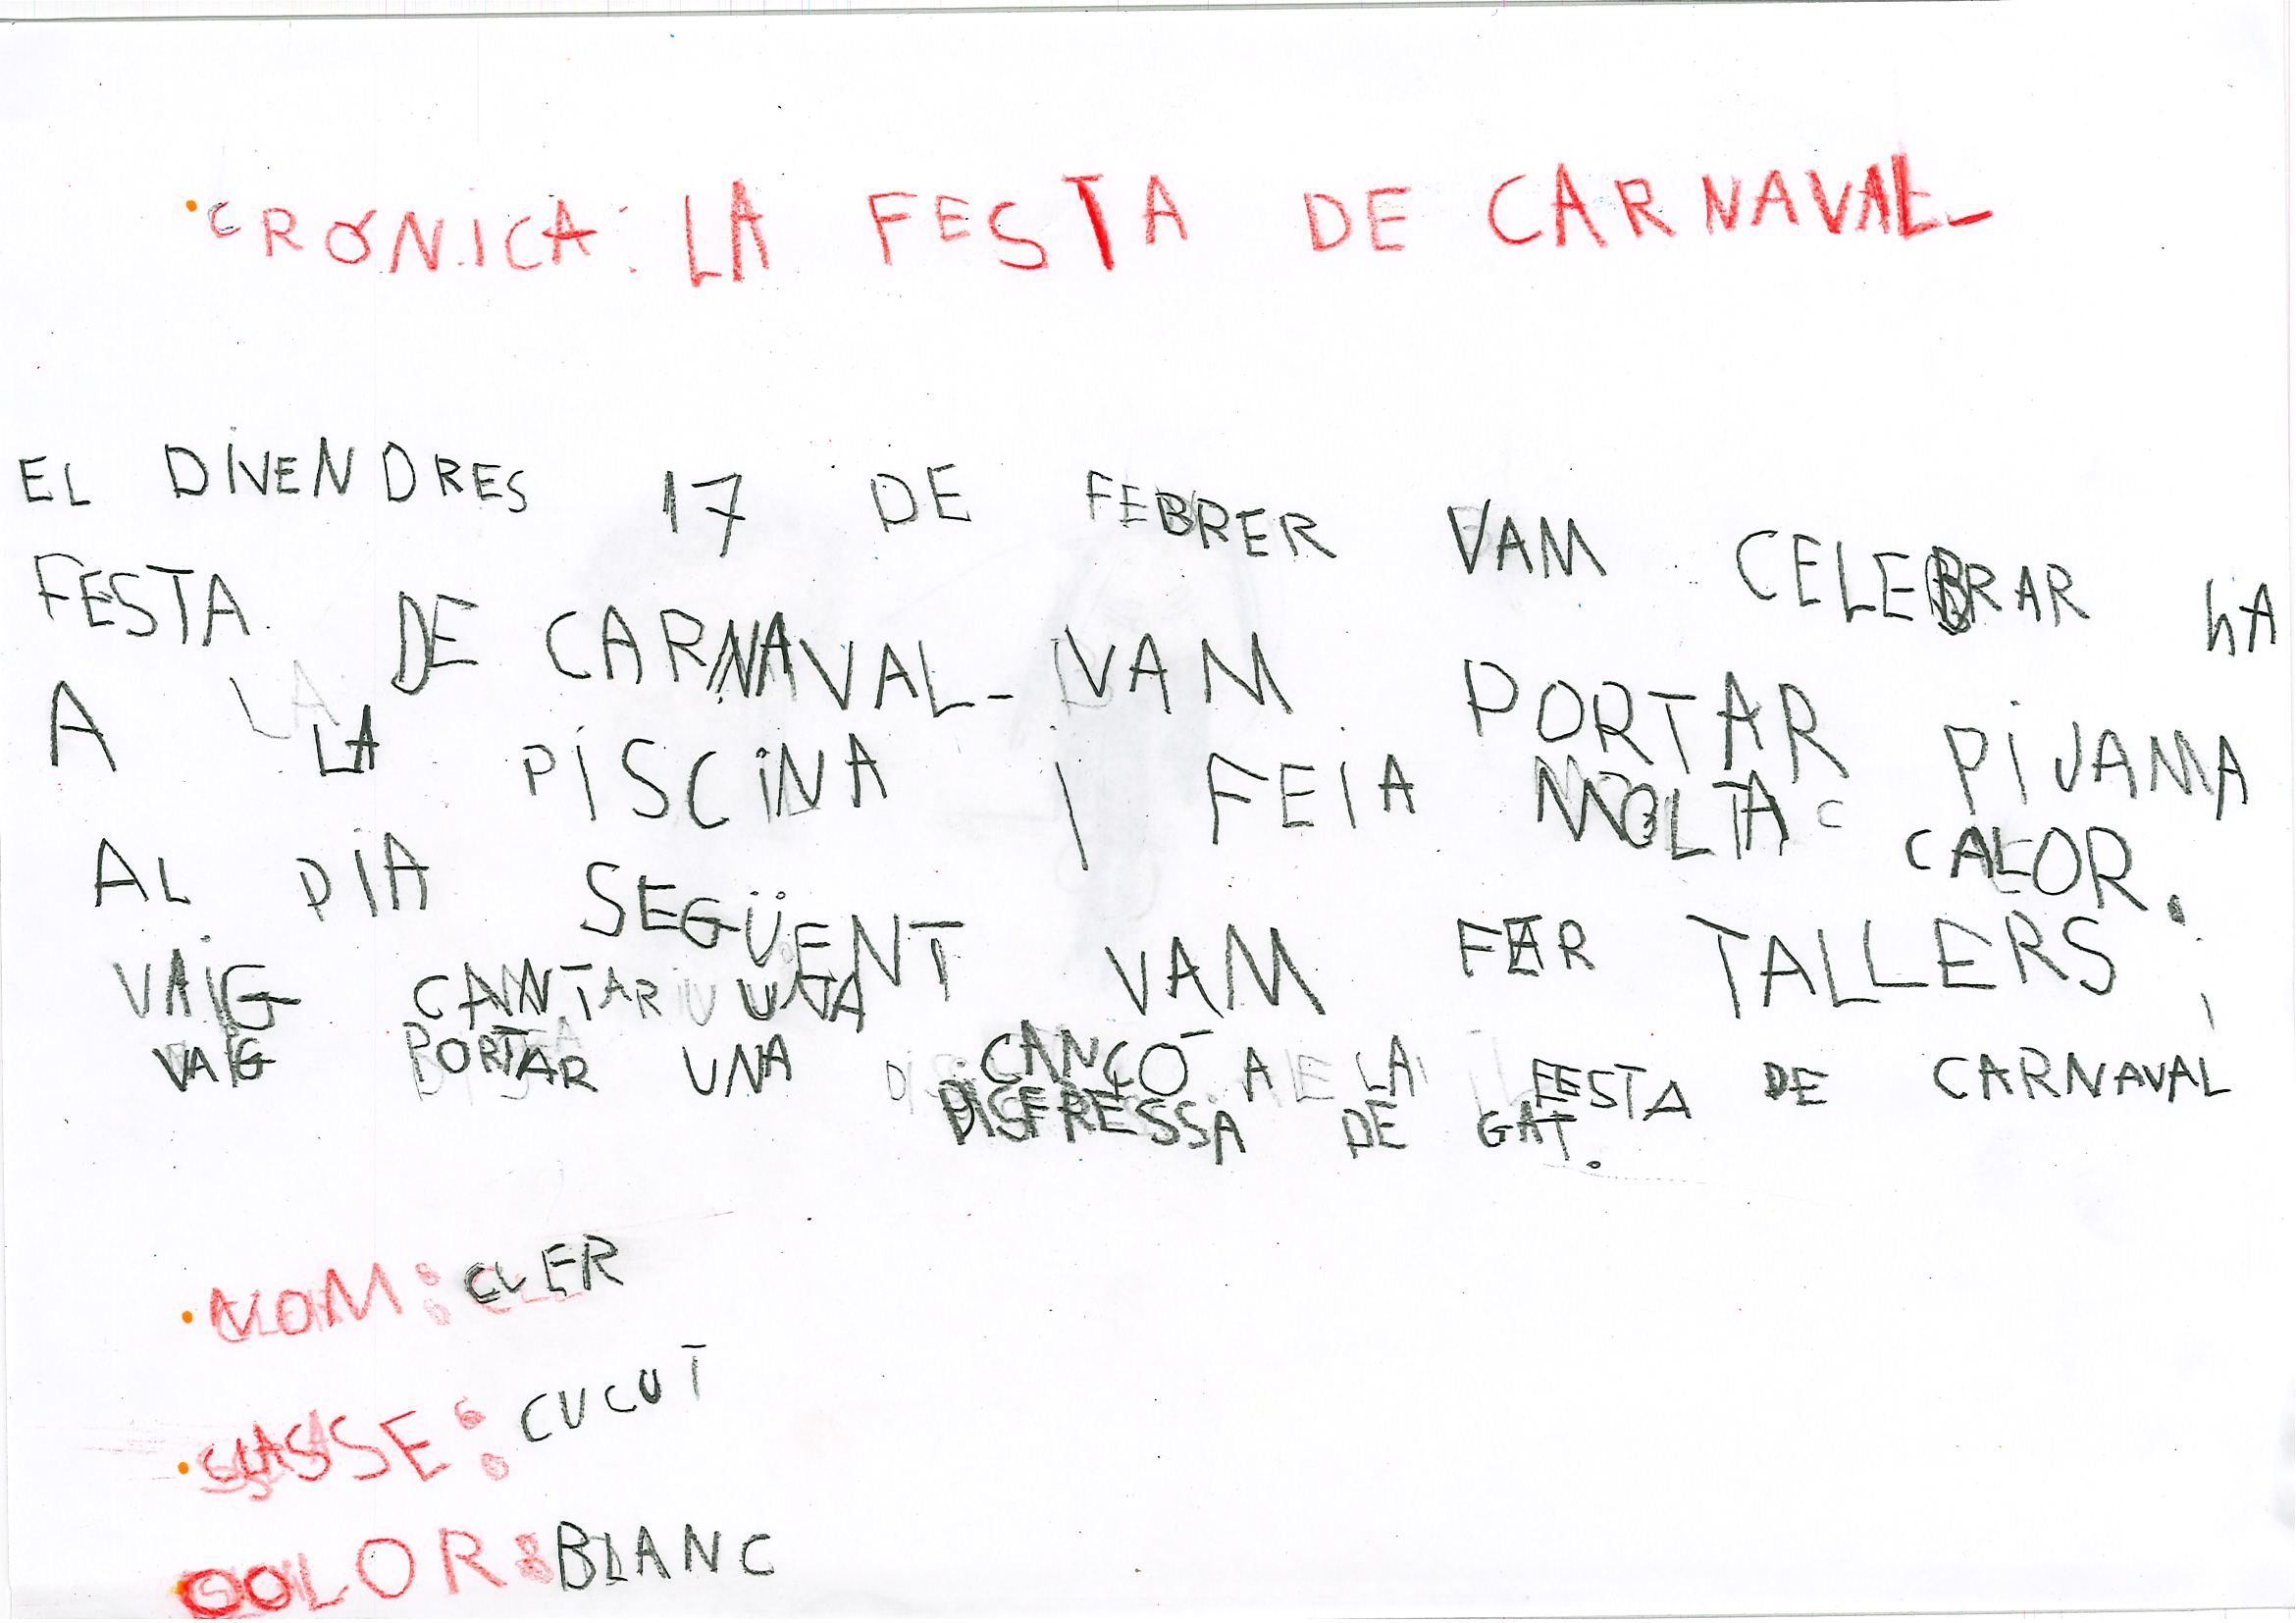 CRÓNICA: LA FESTA DE CARNAVAL
EL DIVENDRES 17 DE FEBRER VAM CELEBRAR LA
FESTA DE CARNAVAL. VAM PORTAR PIJAMA
A LA PISCINA I FEIA MOLTA CALOR.
AL DIA SEGÜENT VAM FER TALLERS I
VAIG CANTAR UNA CANÇÓ A LA FESTA DE CARNAVAL
VAIG PORTAR UNA DISFRESSA DE GAT.
NOM: CLER
CLASSE: CUCUT
COLOR: BLANC